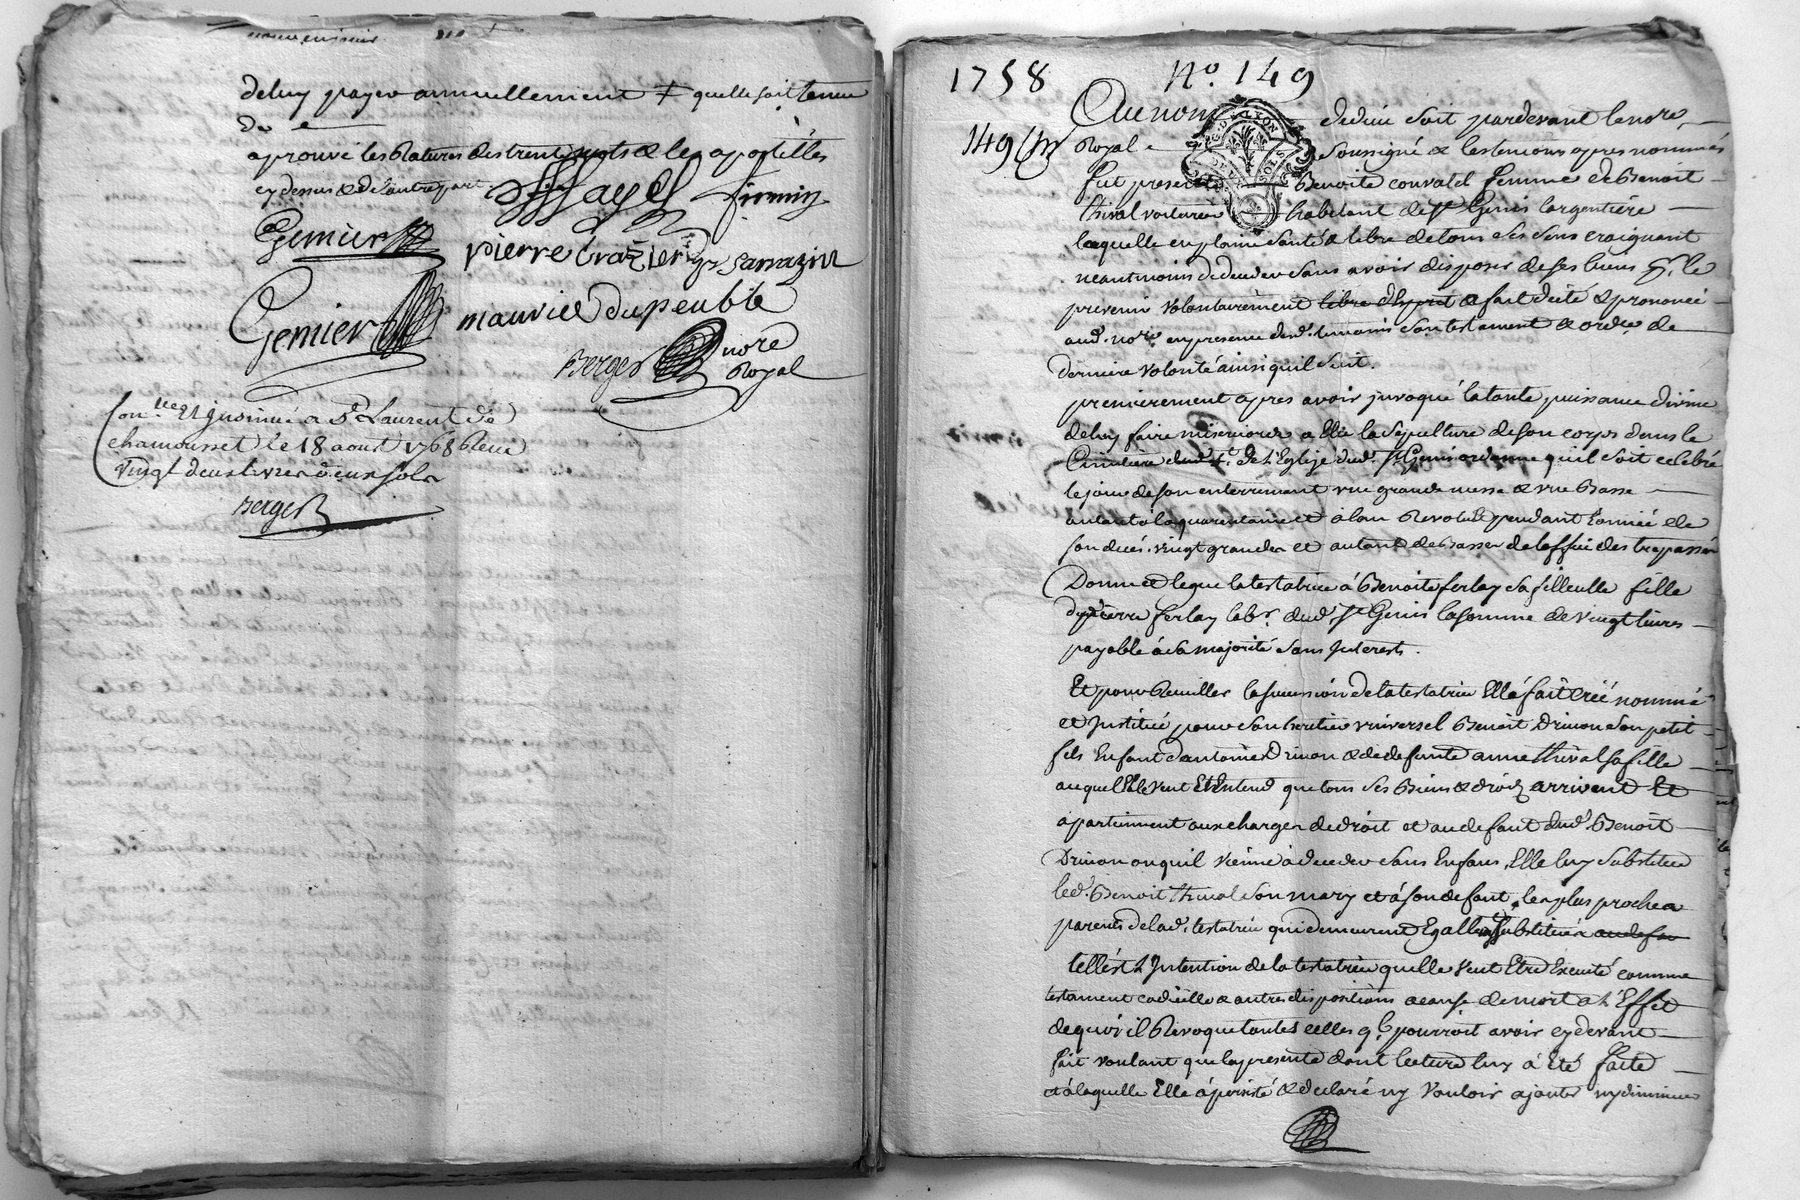 deluy payer annuellement + quelle soit tenue
de
aprouvé les ratures des trente mots & les apostilles
cy dessus & de l'autre part
Sayes firmin
Gemier pierre brazier Sarrazin
Gemier maurice dupeuble
Berger nore
Royal
Con.lle et insinué a St Laurent de
chamousset le 18 aout 1768 Receu
vingt deux livres deux sols
Berger
1758 No. 149
149
Au nom de dieu soit pardevant le nore
Royal soussigné & les temoins apres nommés
fut presente Benoite couvatel femme de Benoit
thival voiturier habitant de St Genis largentière
laquelle en plaine Santé & libre de tous ses sens craignant
neantmoins de deceder sans avoir disposer de ses biens pr. le
prevenir volontairement libre d'Esprit a fait dicté & prononcé
aud. nore en presence desd. temoins son testament & ordre de
derniere volonté ainsi qu'il suit.
premierement apres avoir invoqué la toute puissance divine
de luy faire misericorde a Elû la sepulture de son corps dans le
Cimetiere de l'Eglise dud. St Genis ordonne qu'il soit celebré
le jour de son enterrement une grande messe & une Basse
autant a la quarantaine et à l'an Revolu et pendant l'année de
son decés vingt grandes et autant de Basses de l'office des trepassés
Donne et legue la testatrice à Benoite ferlay sa filleulle fille
de pierre ferlay labr. dud. St Genis la somme de vingt livres
payable à sa majorité sans Interests.
Et pour Recuillir la succession de la testatrice Elle a fait Créé nommé
et Institué pour son heritier universel Benoit Drivon son petit
fils Enfant d'antoine Drivon & de defunte anne thival sa fille
auquel Elle veut Et Entend que tous ses Biens & droits arrivent Et
apartiennent aux charges de droit et au defaut dud. Benoit
Drivon ou quil vienne à deceder sans Enfans, Elle luy substitue
led. Benoit thival son mary et à son defaut les plus proches
parents de lad. testatrice qui demeurent Egallement substitués
telle est l'Intention de la testatrice quelle veut Etre Executé comme
testament codicille & autres dispositions a cause de mort a l'Effet
de quoi il Revoque toutes celles q'l. pourroit avoir cy devant
fait voulant que la presente dont lecture luy à Eté faite
et à laquelle Elle à persisté & declaré ny vouloir ajouter ny diminuer